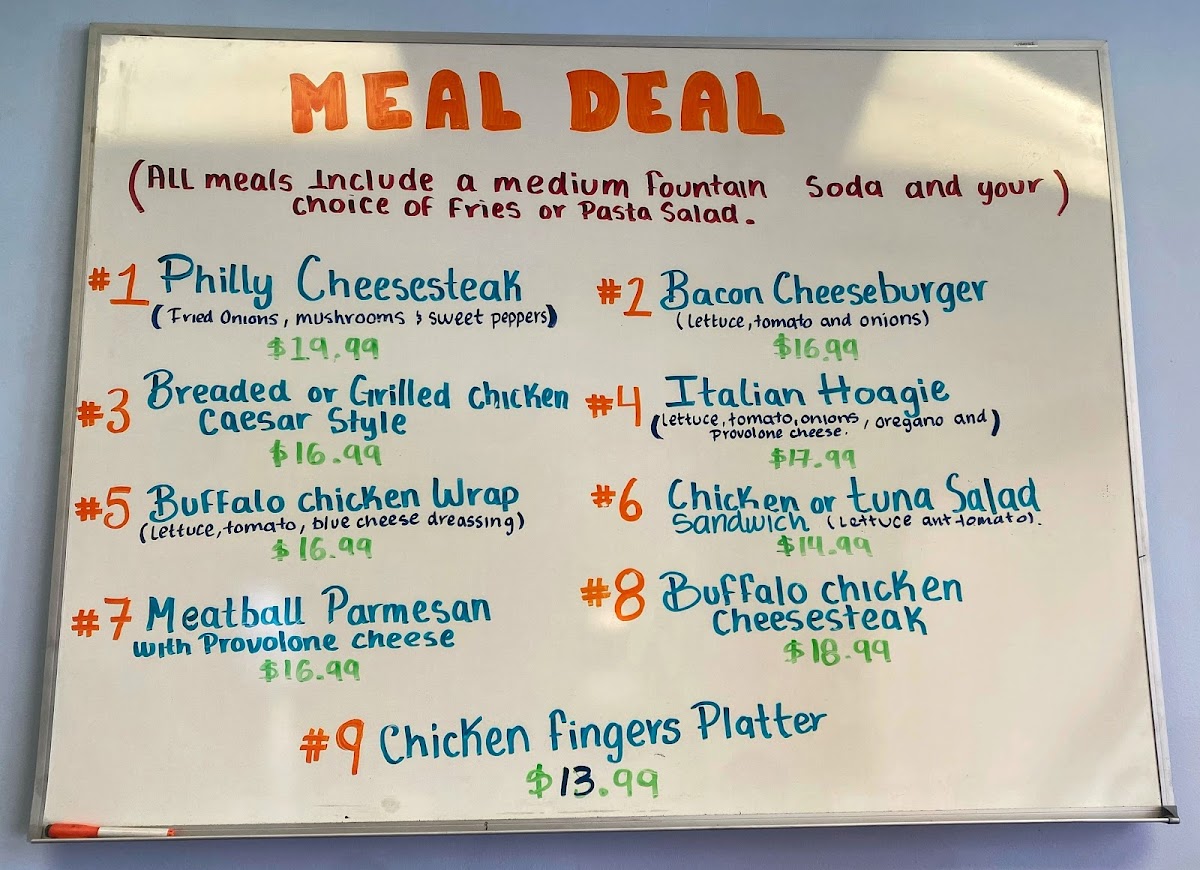 MEAL DEAL
(ALL meals Include a medium fountain soda and your)
choice of Fries or Pasta Salad.
#1 Philly Cheesesteak
(Fried Onions, mushrooms & sweet peppers)
$19.99
#2 Bacon Cheeseburger
(lettuce, tomato and onions)
$16.99
#3 Breaded or Grilled chicken
Caesar Style
$16.99
#4 Italian Hoagie
(lettuce, tomato, onions, oregano and)
Provolone cheese.
$17.99
#5 Buffalo chicken Wrap
(lettuce, tomato, blue cheese dreassing)
$16.99
#6 Chicken or tuna Salad
Sandwich (lettuce ant tomato).
$14.99
#7 Meatball Parmesan
with Provolone cheese
$16.99
#8 Buffalo chicken
Cheesesteak
$18.99
#9 Chicken fingers Platter
$13.99